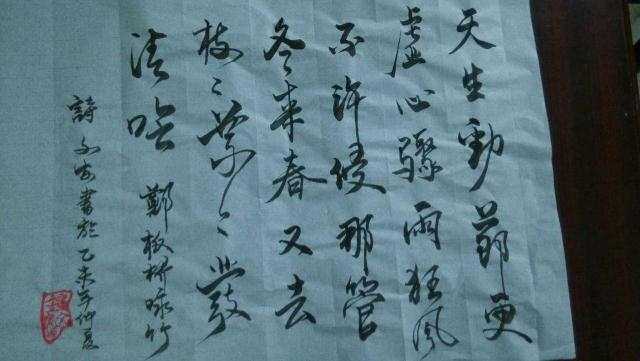 天生勁節更
虛心驟雨狂風
不許侵那管
冬來春又去
枝々葉々發
清吟 鄭板橋咏竹
詩 書於乙未年仲夏